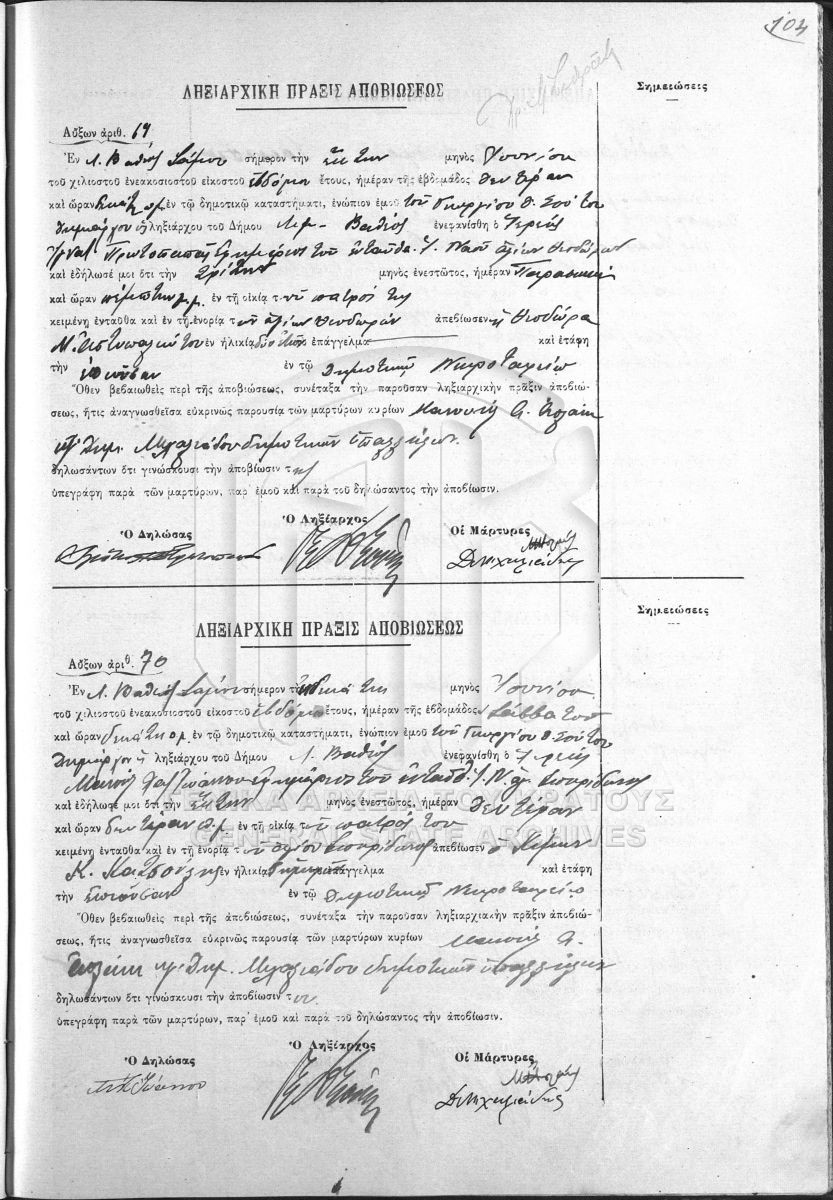 104
ΛΗΞΙΑΡΧΙΚΗ ΠΡΑΞΙΣ ΑΠΟΒΙΩΣΕΩΣ
Σημειώσεις
Αὔξων ἀριθ. 69
Ἐν Λ. Βαθέος Σάμου σήμερον τὴν ἕκτην μηνὸς Ἰουνίου
τοῦ χιλιοστοῦ ἐνεακοσιοστοῦ εἰκοστοῦ ἑβδόμου ἔτους, ἡμέραν τῆς ἑβδομάδος Δευτέραν
καὶ ὥραν δεκάτην π.μ. ἐν τῷ δημοτικῷ καταστήματι, ἐνώπιον ἐμοῦ τοῦ Γεωργίου Θ. Σούτου
Δημάρχου ἢ ληξιάρχου τοῦ Δήμου Λιμ. Βαθέος ἐνεφανίσθη ὁ Ἱερεὺς
Πρωτοπαπᾶς ἐφημέριος τοῦ ἐνταῦθα Ἱ. Ναοῦ Ἁγίων Θεοδώρων
καὶ ἐδήλωσέ μοι ὅτι τὴν Τρίτην μηνὸς ἐνεστῶτος, ἡμέραν Παρασκευὴν
καὶ ὥραν πέμπτην μ.μ. ἐν τῇ οἰκίᾳ τοῦ πατρός της
κειμένῃ ἐνταῦθα καὶ ἐν τῇ ἐνορίᾳ τῶν ἁγίων Θεοδώρων ἀπεβίωσεν ἡ Θεοδώρα
Μ. ἐν ἡλικίᾳ ἐπάγγελμα καὶ ἐτάφη
τὴν ἐπιοῦσαν ἐν τῷ Δημοτικῷ Νεκροταφείῳ
Ὅθεν βεβαιωθεὶς περὶ τῆς ἀποβιώσεως, συνέταξα τὴν παροῦσαν ληξιαρχικὴν πρᾶξιν ἀποβιώ-
σεως, ἥτις ἀναγνωσθεῖσα εὐκρινῶς παρουσίᾳ τῶν μαρτύρων κυρίων Μανουὴλ
καὶ Δημ. Μιχαλιάδου δημοτικῶν ὑπαλλήλων
δηλωσάντων ὅτι γινώσκουσι τὴν ἀποβίωσιν της
ὑπεγράφη παρὰ τῶν μαρτύρων, παρ' ἐμοῦ καὶ παρὰ τοῦ δηλώσαντος τὴν ἀποβίωσιν.
Ὁ Δηλώσας Ὁ Ληξίαρχος Οἱ Μάρτυρες
Δ. Μιχαλιάδης
ΛΗΞΙΑΡΧΙΚΗ ΠΡΑΞΙΣ ΑΠΟΒΙΩΣΕΩΣ
Σημειώσεις
Αὔξων ἀριθ. 70
Ἐν Λ. Βαθέος Σάμου σήμερον τὴν ἑνδεκάτην μηνὸς Ἰουνίου
τοῦ χιλιοστοῦ ἐνεακοσιοστοῦ εἰκοστοῦ ἑβδόμου ἔτους, ἡμέραν τῆς ἑβδομάδος Σάββατον
καὶ ὥραν δεκάτην π.μ. ἐν τῷ δημοτικῷ καταστήματι, ἐνώπιον ἐμοῦ τοῦ Γεωργίου Θ. Σούτου
Δημάρχου ἢ ληξιάρχου τοῦ Δήμου Λ. Βαθέος ἐνεφανίσθη ὁ Ἱερεὺς
Μανουὴλ ἐφημέριος τοῦ ἐνταῦθα Ἱ. Ν. ἁγ. Σπυρίδωνος
καὶ ἐδήλωσέ μοι ὅτι τὴν ἕκτην μηνὸς ἐνεστῶτος, ἡμέραν Δευτέραν
ΓΕΝΙΚΑ ΑΡΧΕΙΑ ΤΟΥ ΚΡΑΤΟΥΣ
καὶ ὥραν δευτέραν π.μ. ἐν τῇ οἰκίᾳ τοῦ πατρός του
GENERAL STATE ARCHIVES
κειμένῃ ἐνταῦθα καὶ ἐν τῇ ἐνορίᾳ τοῦ ἁγίου Σπυρίδωνος ἀπεβίωσεν ὁ Κίμων
Κ. ἐν ἡλικίᾳ ἐπάγγελμα καὶ ἐτάφη
τὴν ἐπιοῦσαν ἐν τῷ Δημοτικῷ Νεκροταφείῳ
Ὅθεν βεβαιωθεὶς περὶ τῆς ἀποβιώσεως, συνέταξα τὴν παροῦσαν ληξιαρχιακὴν πρᾶξιν ἀποβιώ-
σεως, ἥτις ἀναγνωσθεῖσα εὐκρινῶς παρουσίᾳ τῶν μαρτύρων κυρίων Μανουὴλ
καὶ Δημ. Μιχαλιάδου δημοτικῶν ὑπαλλήλων
δηλωσάντων ὅτι γινώσκουσι τὴν ἀποβίωσιν του
ὑπεγράφη παρὰ τῶν μαρτύρων, παρ' ἐμοῦ καὶ παρὰ τοῦ δηλώσαντος τὴν ἀποβίωσιν.
Ὁ Δηλώσας Ὁ Ληξίαρχος Οἱ Μάρτυρες
Δ. Μιχαλιάδης